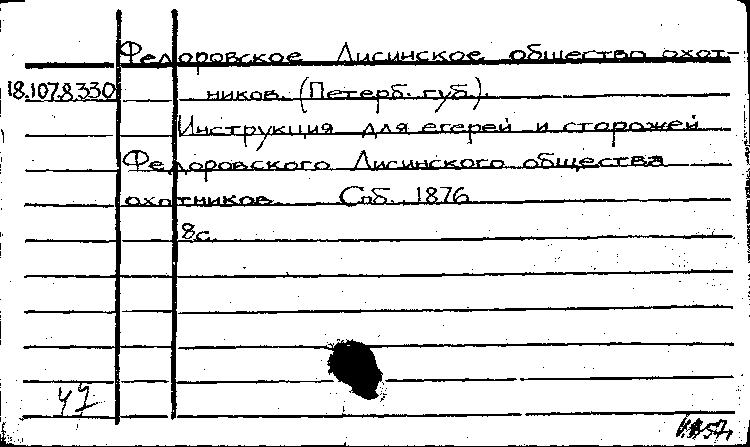 Федоровское Лисинское общество охот-
18.107.8.330 ников. (Петерб. губ.).
Инструкция для егерей и сторожей
Федоровского Лисинского общества
охотников. Спб., 1876
8с.
47